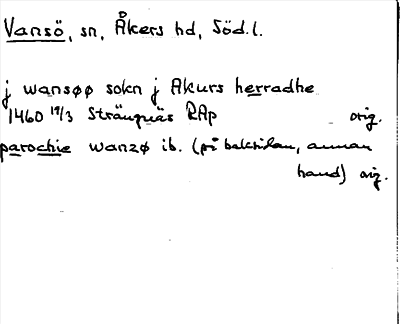 Vansö, sn, Åkers hd, Söd.l.
j wansøø sokn j Akurs herradhe
1460 19/3 Strängnäs RAp orig.
parochie wanzø ib. (på baksidan, annan
hand) orig.